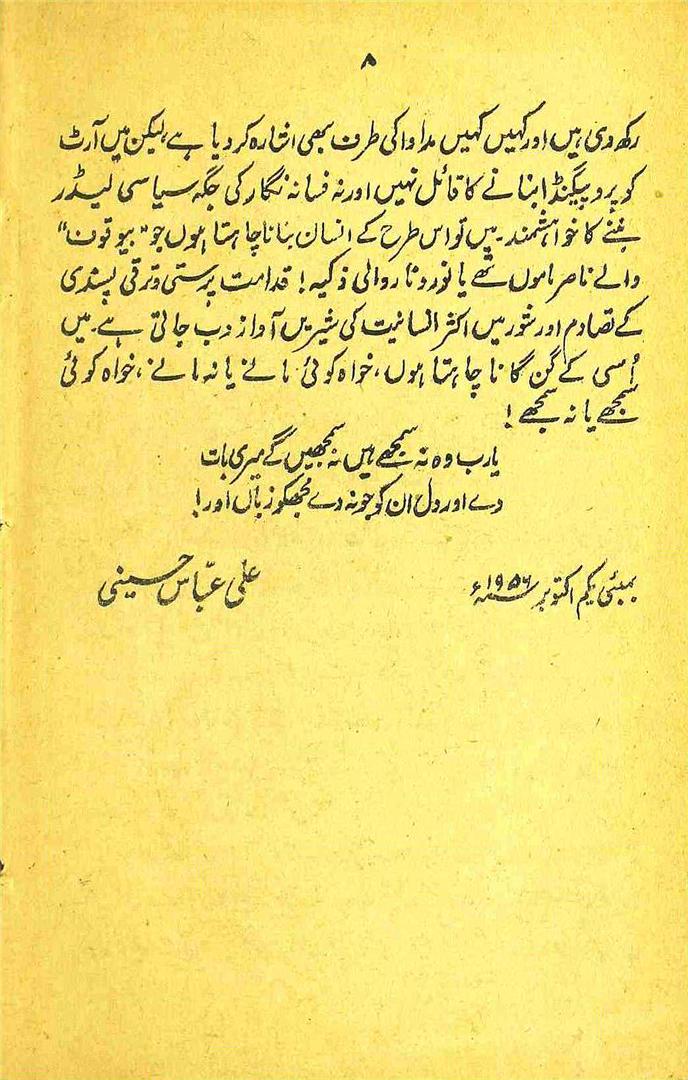 ۸
رکھ دی ہیں اور کہیں کہیں مداوا کی طرف بھی اشارہ کر دیا ہے، لیکن میں آرٹ
کو پروپیگنڈا بنانے کا قائل نہیں اور نہ فسانہ نگار کی جگہ سیاسی لیڈر
بننے کا خواہشمند۔ میں تو اس طرح کے انسان بنانا چاہتا ہوں جو "بیوقوف"
والے ناصر ماموں تھے یا نور و نار والی ذکیہ! قدامت پرستی و ترقی پسندی
کے تصادم اور شور میں اکثر انسانیت کی شیریں آواز دب جاتی ہے۔ میں
اُسی کے گن گانا چاہتا ہوں، خواہ کوئی مانے یا نہ مانے، خواہ کوئی
سمجھے یا نہ سمجھے!
یارب وہ نہ سمجھے ہیں نہ سمجھیں گے میری بات
دے اور دل ان کو جو نہ دے مجھکو زباں اور!
بمبئی یکم اکتوبر سنہ ۱۹۵۶ء
علی عبّاس حسینی